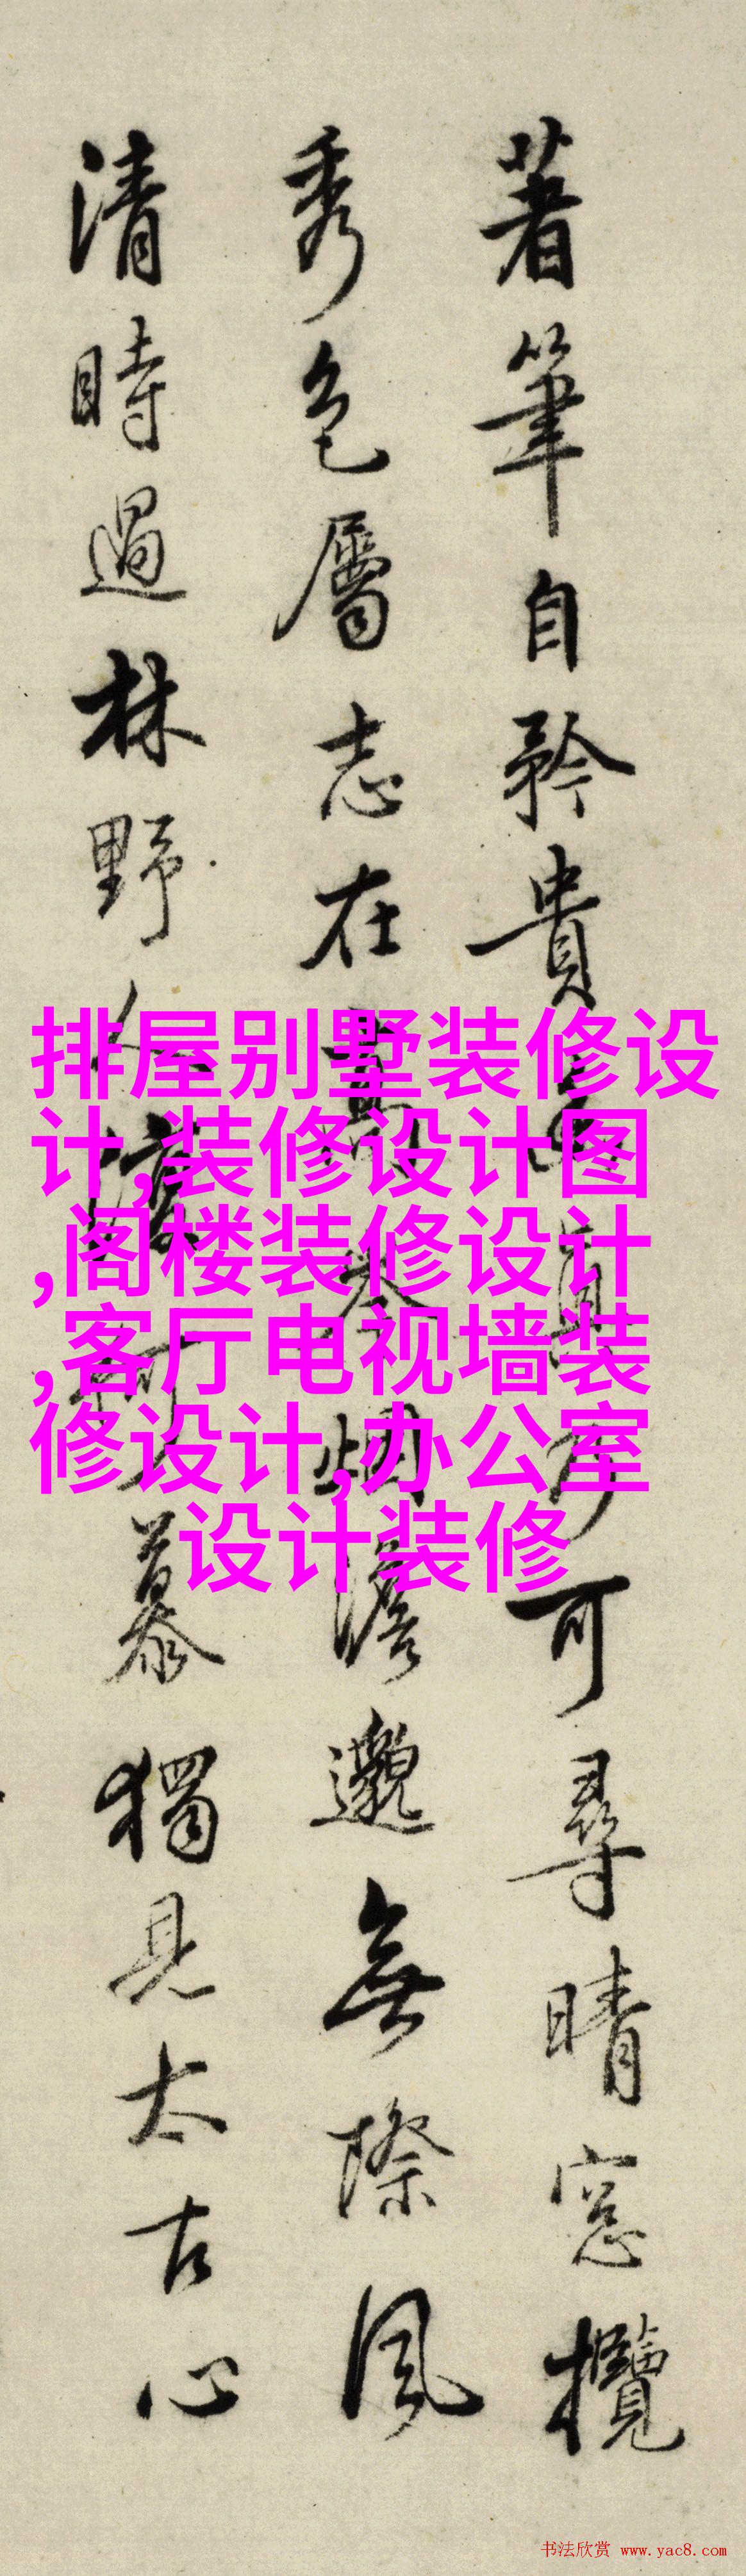 著筆自矜貴
可尋晴窓攬
秀色屬志在
烟澹邈無際風
清時過林野
慕獨見太古心
排屋别墅装修设
计,装修设计图
,阁楼装修设计
,客厅电视墙装
修设计,办公室
设计装修
书法欣赏 www.yac8.com